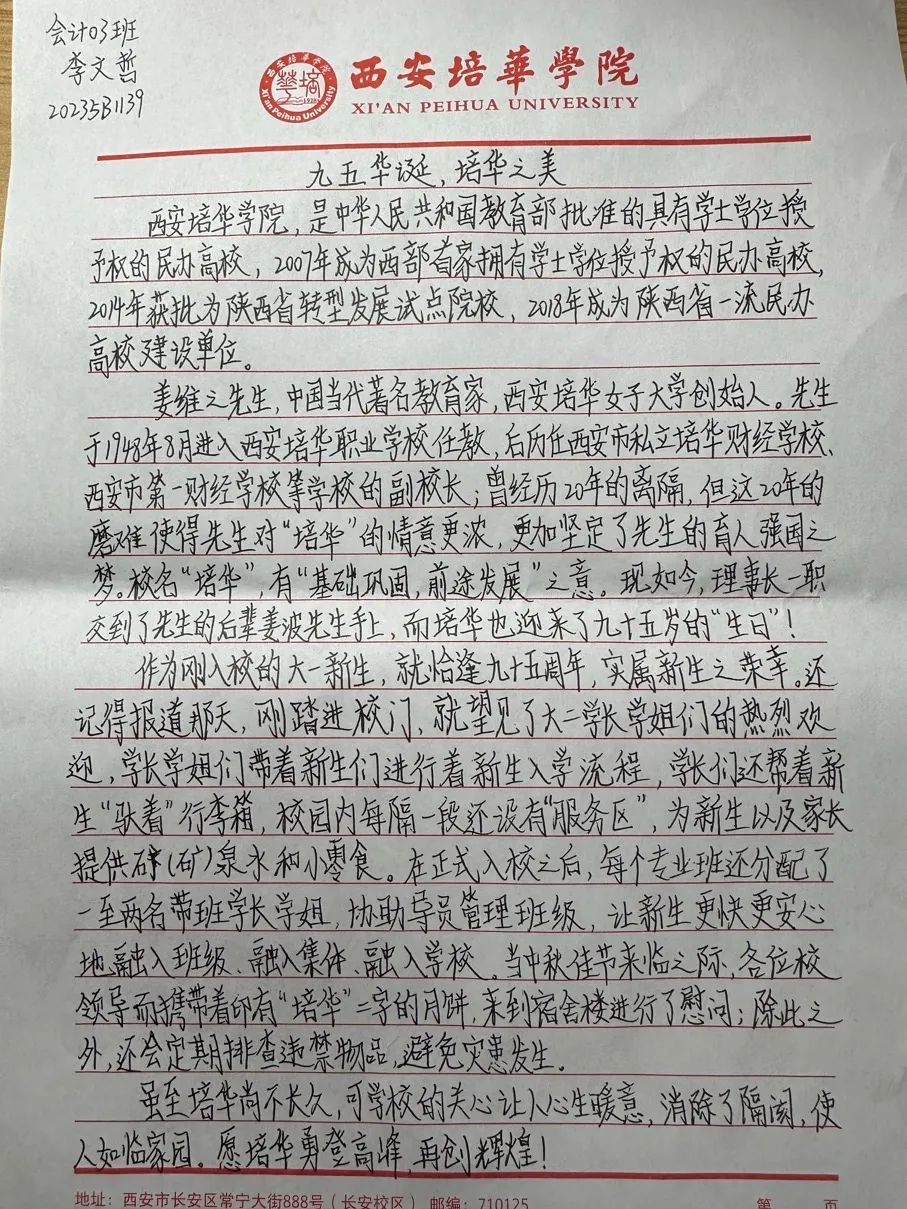 会计03班
李文哲
20235B1139
西安培華學院
XI'AN PEIHUA UNIVERSITY
九五华诞，培华之美
西安培华学院，是中华人民共和国教育部批准的具有学士学位授
予权的民办高校，2007年成为西部首家拥有学士学位授予权的民办高校，
2014年获批为陕西省转型发展试点院校，2018年成为陕西省一流民办
高校建设单位。
姜维之先生，中国当代著名教育家，西安培华女子大学创始人。先生
于1948年8月进入西安培华职业学校任教，后历任西安市私立培华财经学校、
西安市第一财经学校等学校的副校长；曾经历20年的离隔，但这20年的
磨难使得先生对“培华”的情意更浓，更加坚定了先生的育人强国之
梦。校名“培华”，有“基础巩固，前途发展”之意。现如今，理事长一职
交到了先生的后辈姜波先生手上，而培华也迎来了九十五岁的“生日”！
作为刚入校的大一新生，就恰逢九十五周年，实属新生之荣幸。还
记得报道那天，刚踏进校门，就望见了大二学长学姐们的热烈欢
迎，学长学姐们带着新生们进行着新生入学流程，学长们还帮着新
生“驮着”行李箱，校园内每隔一段还设有“服务区”，为新生以及家长
提供矿(矿)泉水和小零食。在正式入校之后，每个专业班还分配了
一至两名带班学长学姐，协助导员管理班级，让新生更快更安心
地融入班级、融入集体、融入学校。当中秋佳节来临之际，各位校
领导而携带着印有“培华”二字的月饼，来到宿舍楼进行了慰问；除此之
外，还会定期排查违禁物品，避免灾患发生。
虽至培华尚不长久，可学校的关心让人心生暖意，消除了隔阂，使
人如临家园。愿培华勇登高峰，再创辉煌！
地址：西安市长安区常宁大街888号（长安校区） 邮编：710125 第 页